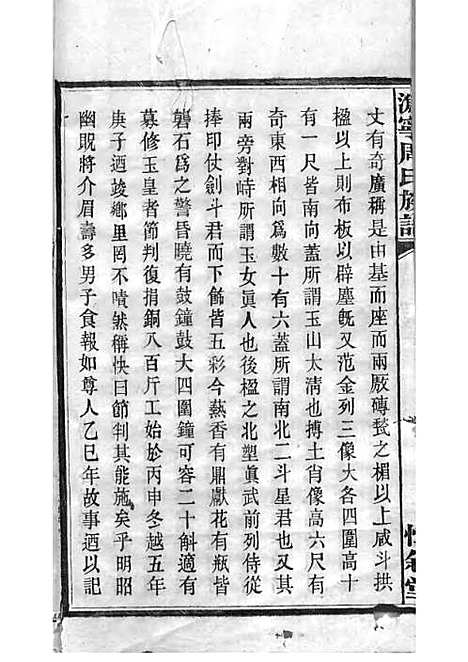 寧周氏族譜
丈有奇廣稱是由基而座而兩廒磚甃之楣以上咸斗拱
楹以上則布板以辟塵旣又范金列三像大各四圍高十
有一尺皆南向蓋所謂玉山太淸也摶土肖像高六尺有
奇東西相向爲數十有六蓋所謂南北二斗星君也又其
兩旁對峙所謂玉女眞人也後楹之北塑眞武前列侍從
捧印仗劍斗君而下飾皆五彩今爇香有鼎獻花有瓶皆
礱石爲之警昏曉有鼓鐘鼓大四圍鐘可容二十斛適有
募修玉皇者節判復捐銅八百斤工始於丙申冬越五年
庚子迺竣鄕里罔不嘖然稱快曰節判其能施矣乎明昭
幽貺將介眉壽多男子食報如尊人乙巳年故事迺以記